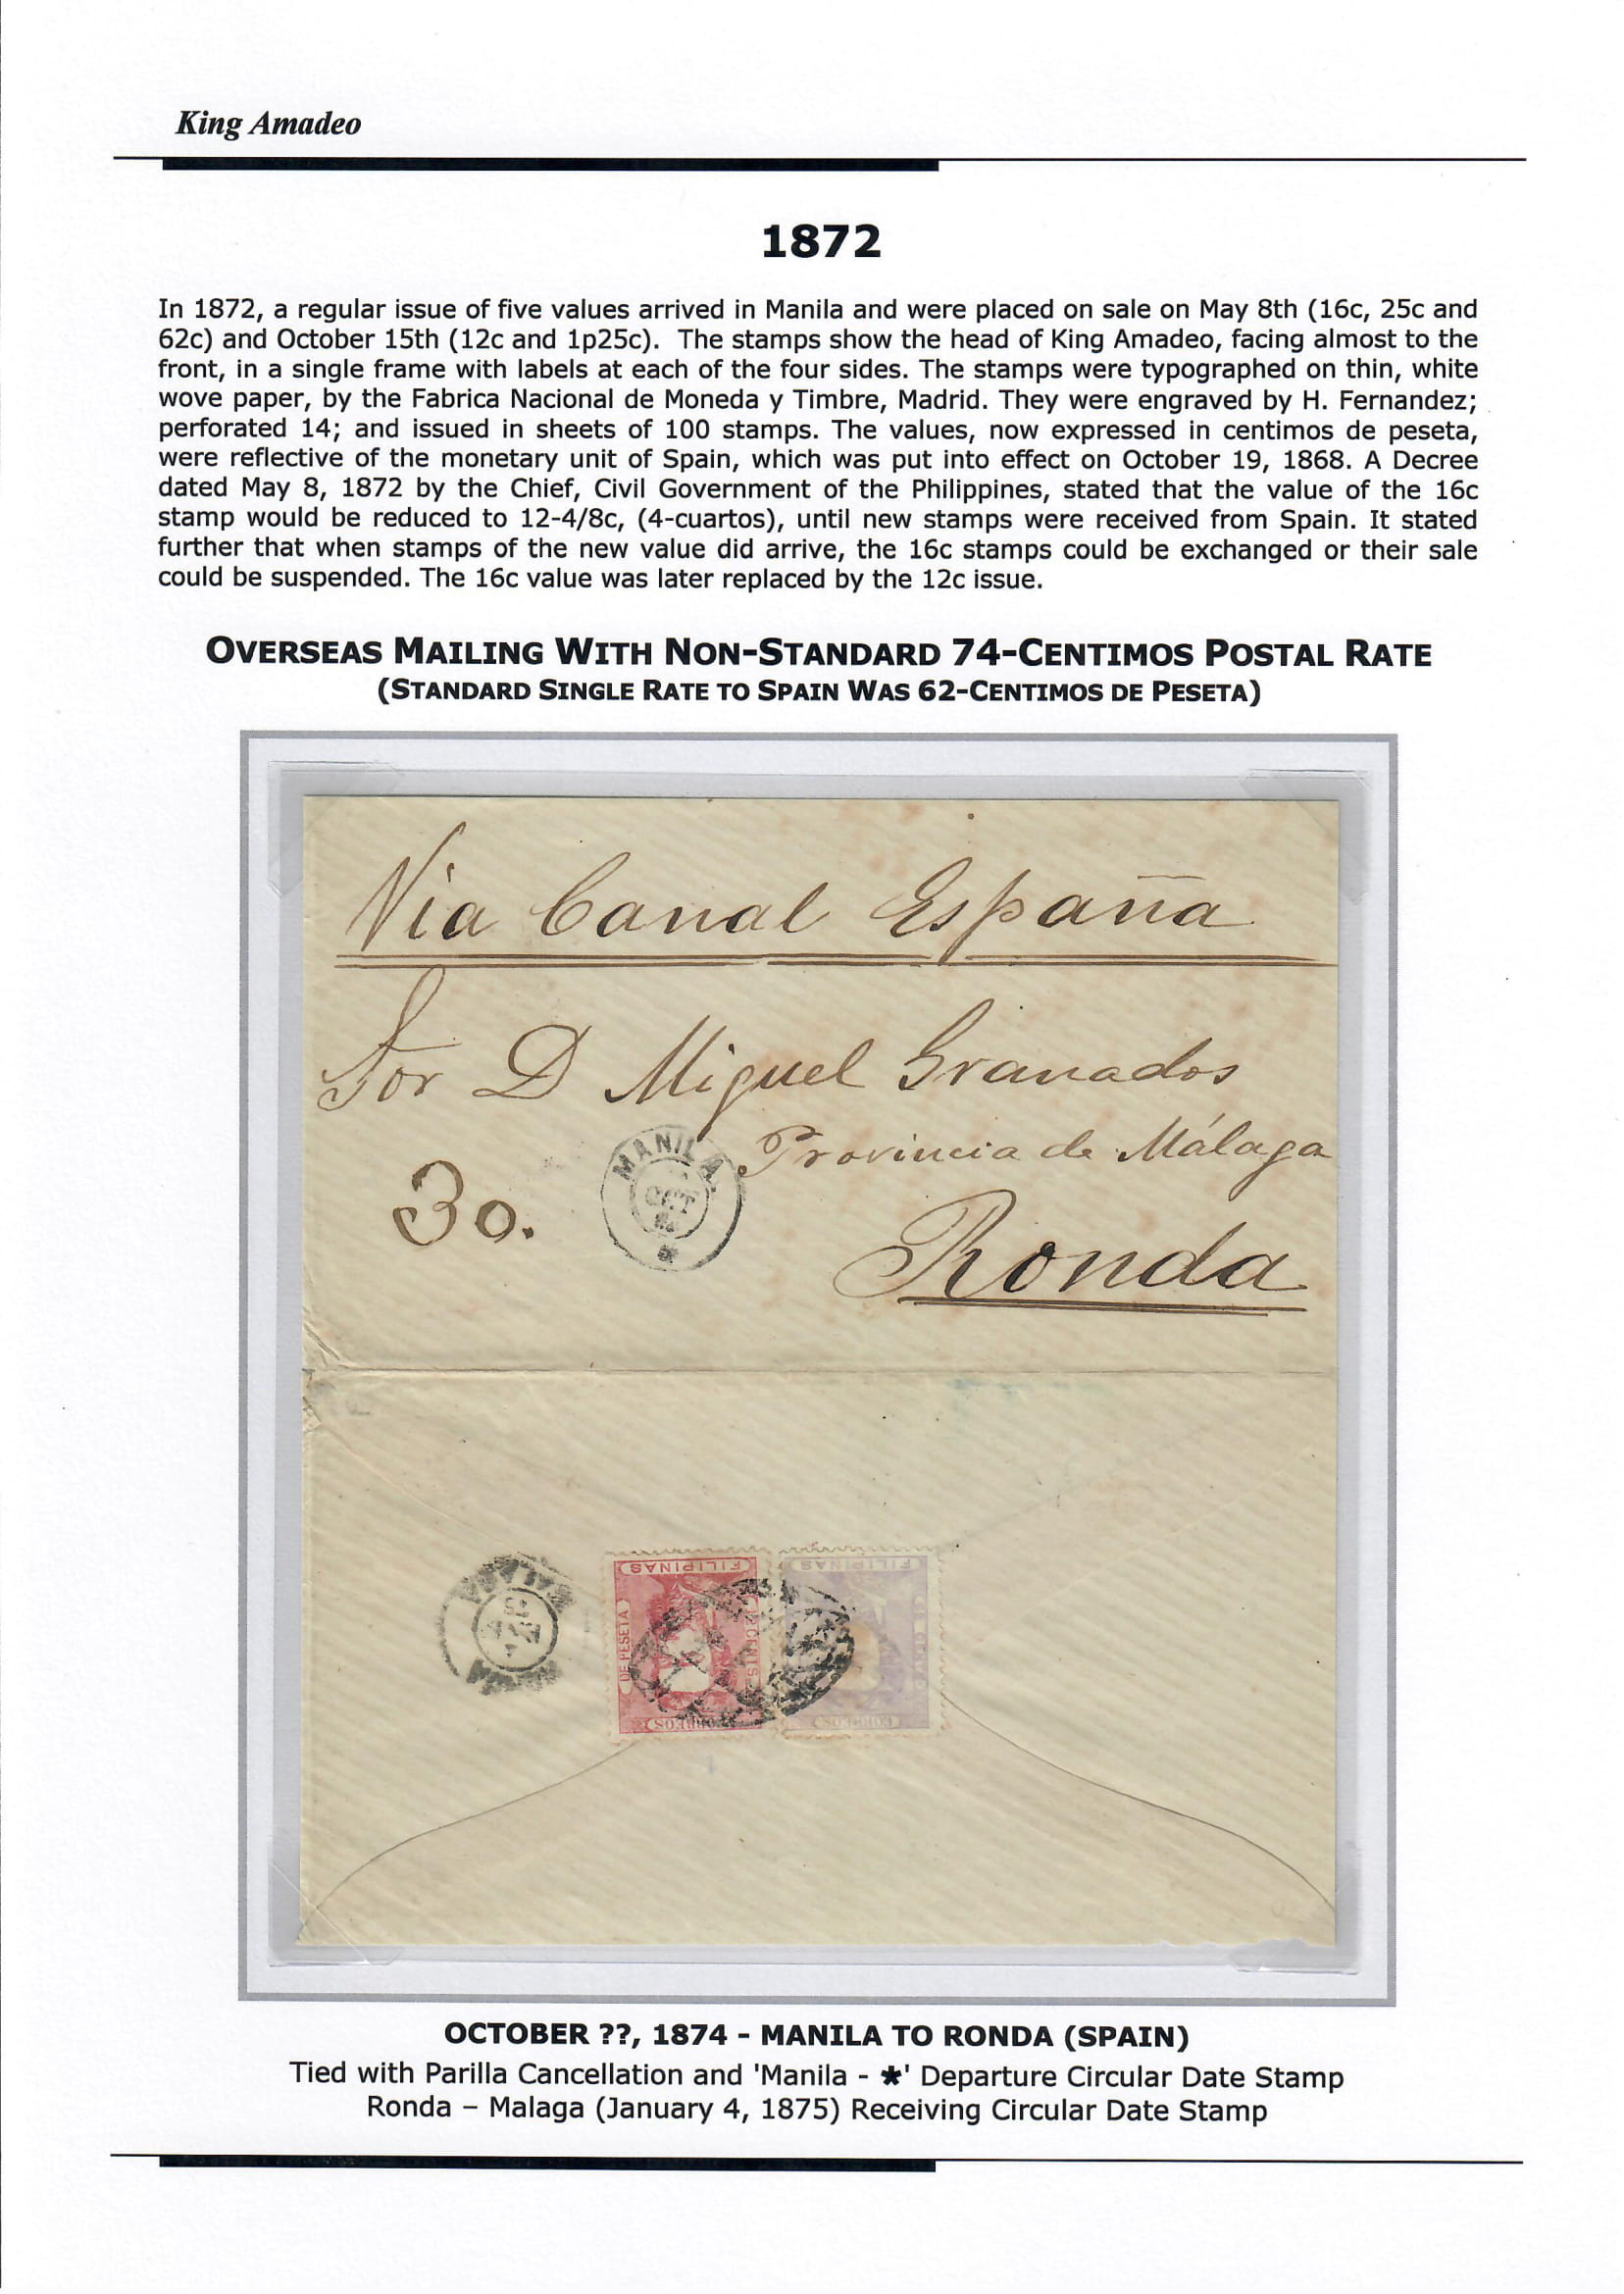 King Amadeo
1872
In 1872, a regular issue of five values arrived in Manila and were placed on sale on May 8th (16c, 25c and
62c) and October 15th (12c and 1p25c). The stamps show the head of King Amadeo, facing almost to the
front, in a single frame with labels at each of the four sides. The stamps were typographed on thin, white
wove paper, by the Fabrica Nacional de Moneda y Timbre, Madrid. They were engraved by H. Fernandez;
perforated 14; and issued in sheets of 100 stamps. The values, now expressed in centimos de peseta,
were reflective of the monetary unit of Spain, which was put into effect on October 19, 1868. A Decree
dated May 8, 1872 by the Chief, Civil Government of the Philippines, stated that the value of the 16c
stamp would be reduced to 12-4/8c, (4-cuartos), until new stamps were received from Spain. It stated
further that when stamps of the new value did arrive, the 16c stamps could be exchanged or their sale
could be suspended. The 16c value was later replaced by the 12c issue.
OVERSEAS MAILING WITH NON-STANDARD 74-CENTIMOS POSTAL RATE
(STANDARD SINGLE RATE TO SPAIN WAS 62-CENTIMOS DE PESETA)
Via Canal España
Sor D Miguel Granados
Provincia de Málaga
Ronda
30.
MANILA
OCT
FILIPINAS
DE PESETA
CORREOS
FILIPINAS
CORREOS
OCTOBER ??, 1874 - MANILA TO RONDA (SPAIN)
Tied with Parilla Cancellation and 'Manila - *' Departure Circular Date Stamp
Ronda – Malaga (January 4, 1875) Receiving Circular Date Stamp